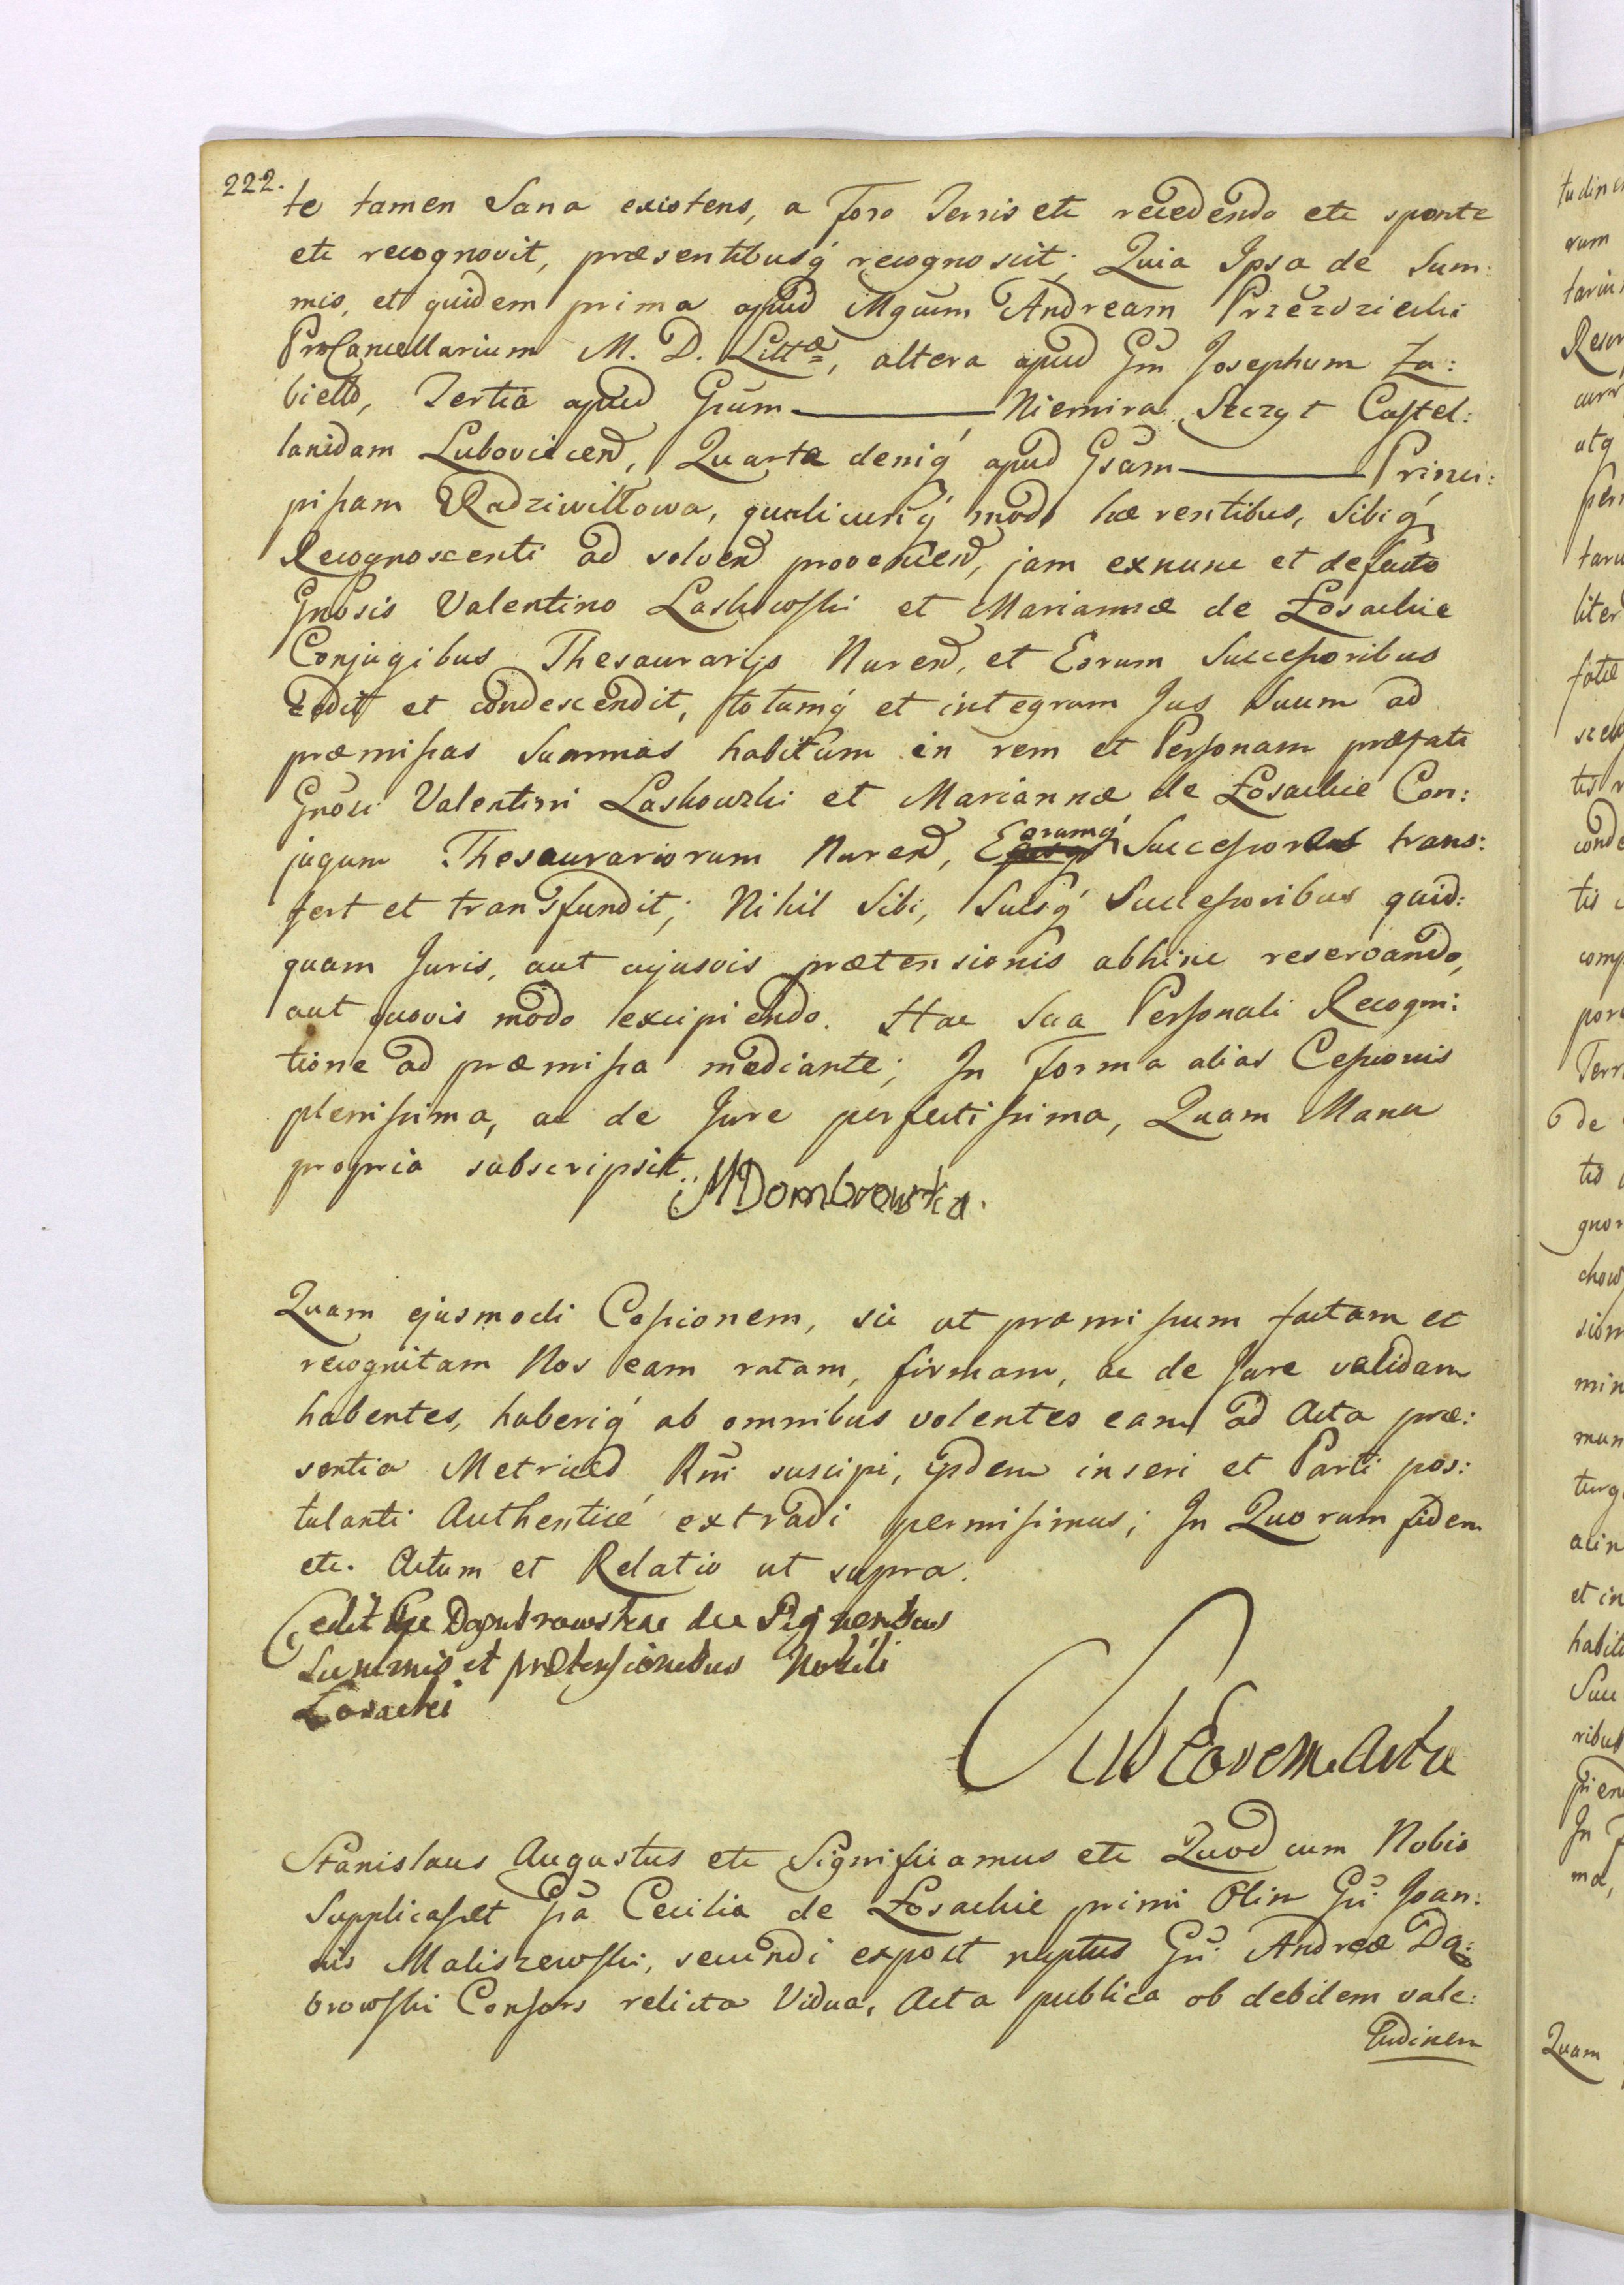 222.
te tamen Sana existens, a Foro Terris etc recedendo etc sponte
etc recognovit, præsentibusq́ recognoscit; Quia Ipsa de Sum:
mis, et quidem prima apud Mgcum Andream Przezdziecki
ProCancellarium M. D. Littæ, altera apud Gm Josephum Za:
biello, Tertia apud Gsum ——— Niemira Szczyt Castel:
lanidam Lubovicen, Quarta deniq́ apud Gsam ——— Princi:
pissam Radziwiłłowa, qualicunq́ modo hærentibus, Sibiq́
Recognoscenti ad solvend proveniend, jam exnunc et defacto
Gnosis Valentino Laskowski et Mariannæ de Łosackie
Conjugibus Thesaurarijs Nuren, et Eorum Successoribus
cedit et condescendit, totumq́ et integrum Jus Suum ad
præmissas Summas habitum in rem et Personam præfati
Gnosi Valentini Laskowski et Mariannæ de Łosackie Con:
jugum Thesaurariorum Nuren, Eorumq́ Successores trans:
fert et transfundit; Nihil Sibi, Suisq́ Successoribus quid:
quam Juris, aut cujusvis prætensionis abhinc reservando,
aut quovis modo excipiendo. Hac Sua Personali Recogni:
tione ad præmissa mediante; In Forma alias Cessionis
plenissima, ac de Jure perfectissima, Quam Manu
propria subscripsit.
MDombrowska.
Quam ejusmodi Cessionem, sic ut præmissum factam et
recognitam Nos eam ratam, firmam, ac de Jure validam
habentes, haberiq́ ab omnibus volentes eam ad Acta præ:
sentia Metrices Rni suscipi, ijsdem inseri et Parti pos:
tulanti Authenticé extradi permisimus; In Quorum fidem
etc. Actum et Relatio ut supra.
Cedit Dąmbrowska de
Summis et prætensionibus Nobili
Łosacki
Sub Eodem Actu
Stanislaus Augustus etc Significamus etc Quod cum Nobis
Supplicasset Gsa Cecilia de Łosackie primi Olim Gsi Joan:
nis Maliszewski, secundi expost nuptus Gsi Andreæ Dą:
browski Consors relicta Vidua, Acta publica ob debilem vale:
tudinem
tudinem
rum